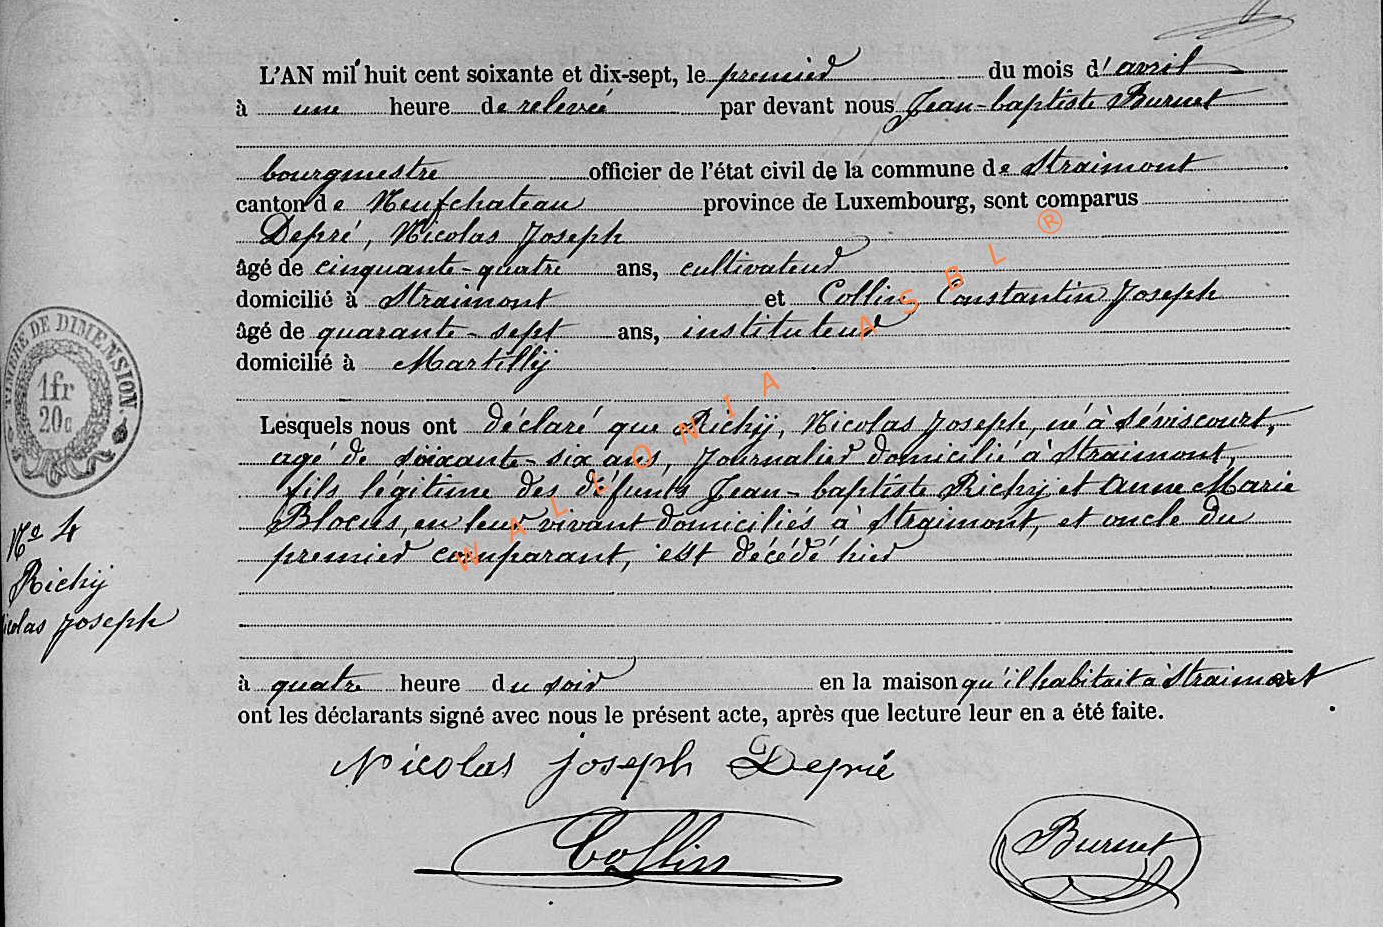 L'AN mil huit cent soixante et dix-sept, le premier du mois d'avril
à une heure de relevée par devant nous Jean-baptiste Burnet
bourgmestre officier de l'état civil de la commune de Straimont
canton de Neufchateau province de Luxembourg, sont comparus
Depré, Nicolas Joseph
âgé de cinquante-quatre ans, cultivateur
domicilié à Straimont et Collin Constantin Joseph
âgé de quarante-sept ans, instituteur
domicilié à Martilly
Lesquels nous ont déclaré que Richy, Nicolas Joseph, né à Séviscourt,
agé de soixante-six ans, Journalier domicilié à Straimont,
fils légitime des défunts Jean-baptiste Richy et Anne Marie
Blocus, en leur vivant domiciliés à Straimont, et oncle du
premier comparant, est décédé hier
à quatre heure du soir en la maison qu'il habitait à Straimont
ont les déclarants signé avec nous le présent acte, après que lecture leur en a été faite.
Nicolas Joseph Deprié
Collin
Burnet
TIMBRE DE DIMENSION.
1fr
20c
No 4
Richy
Nicolas Joseph
WALLONIA ASBL ®